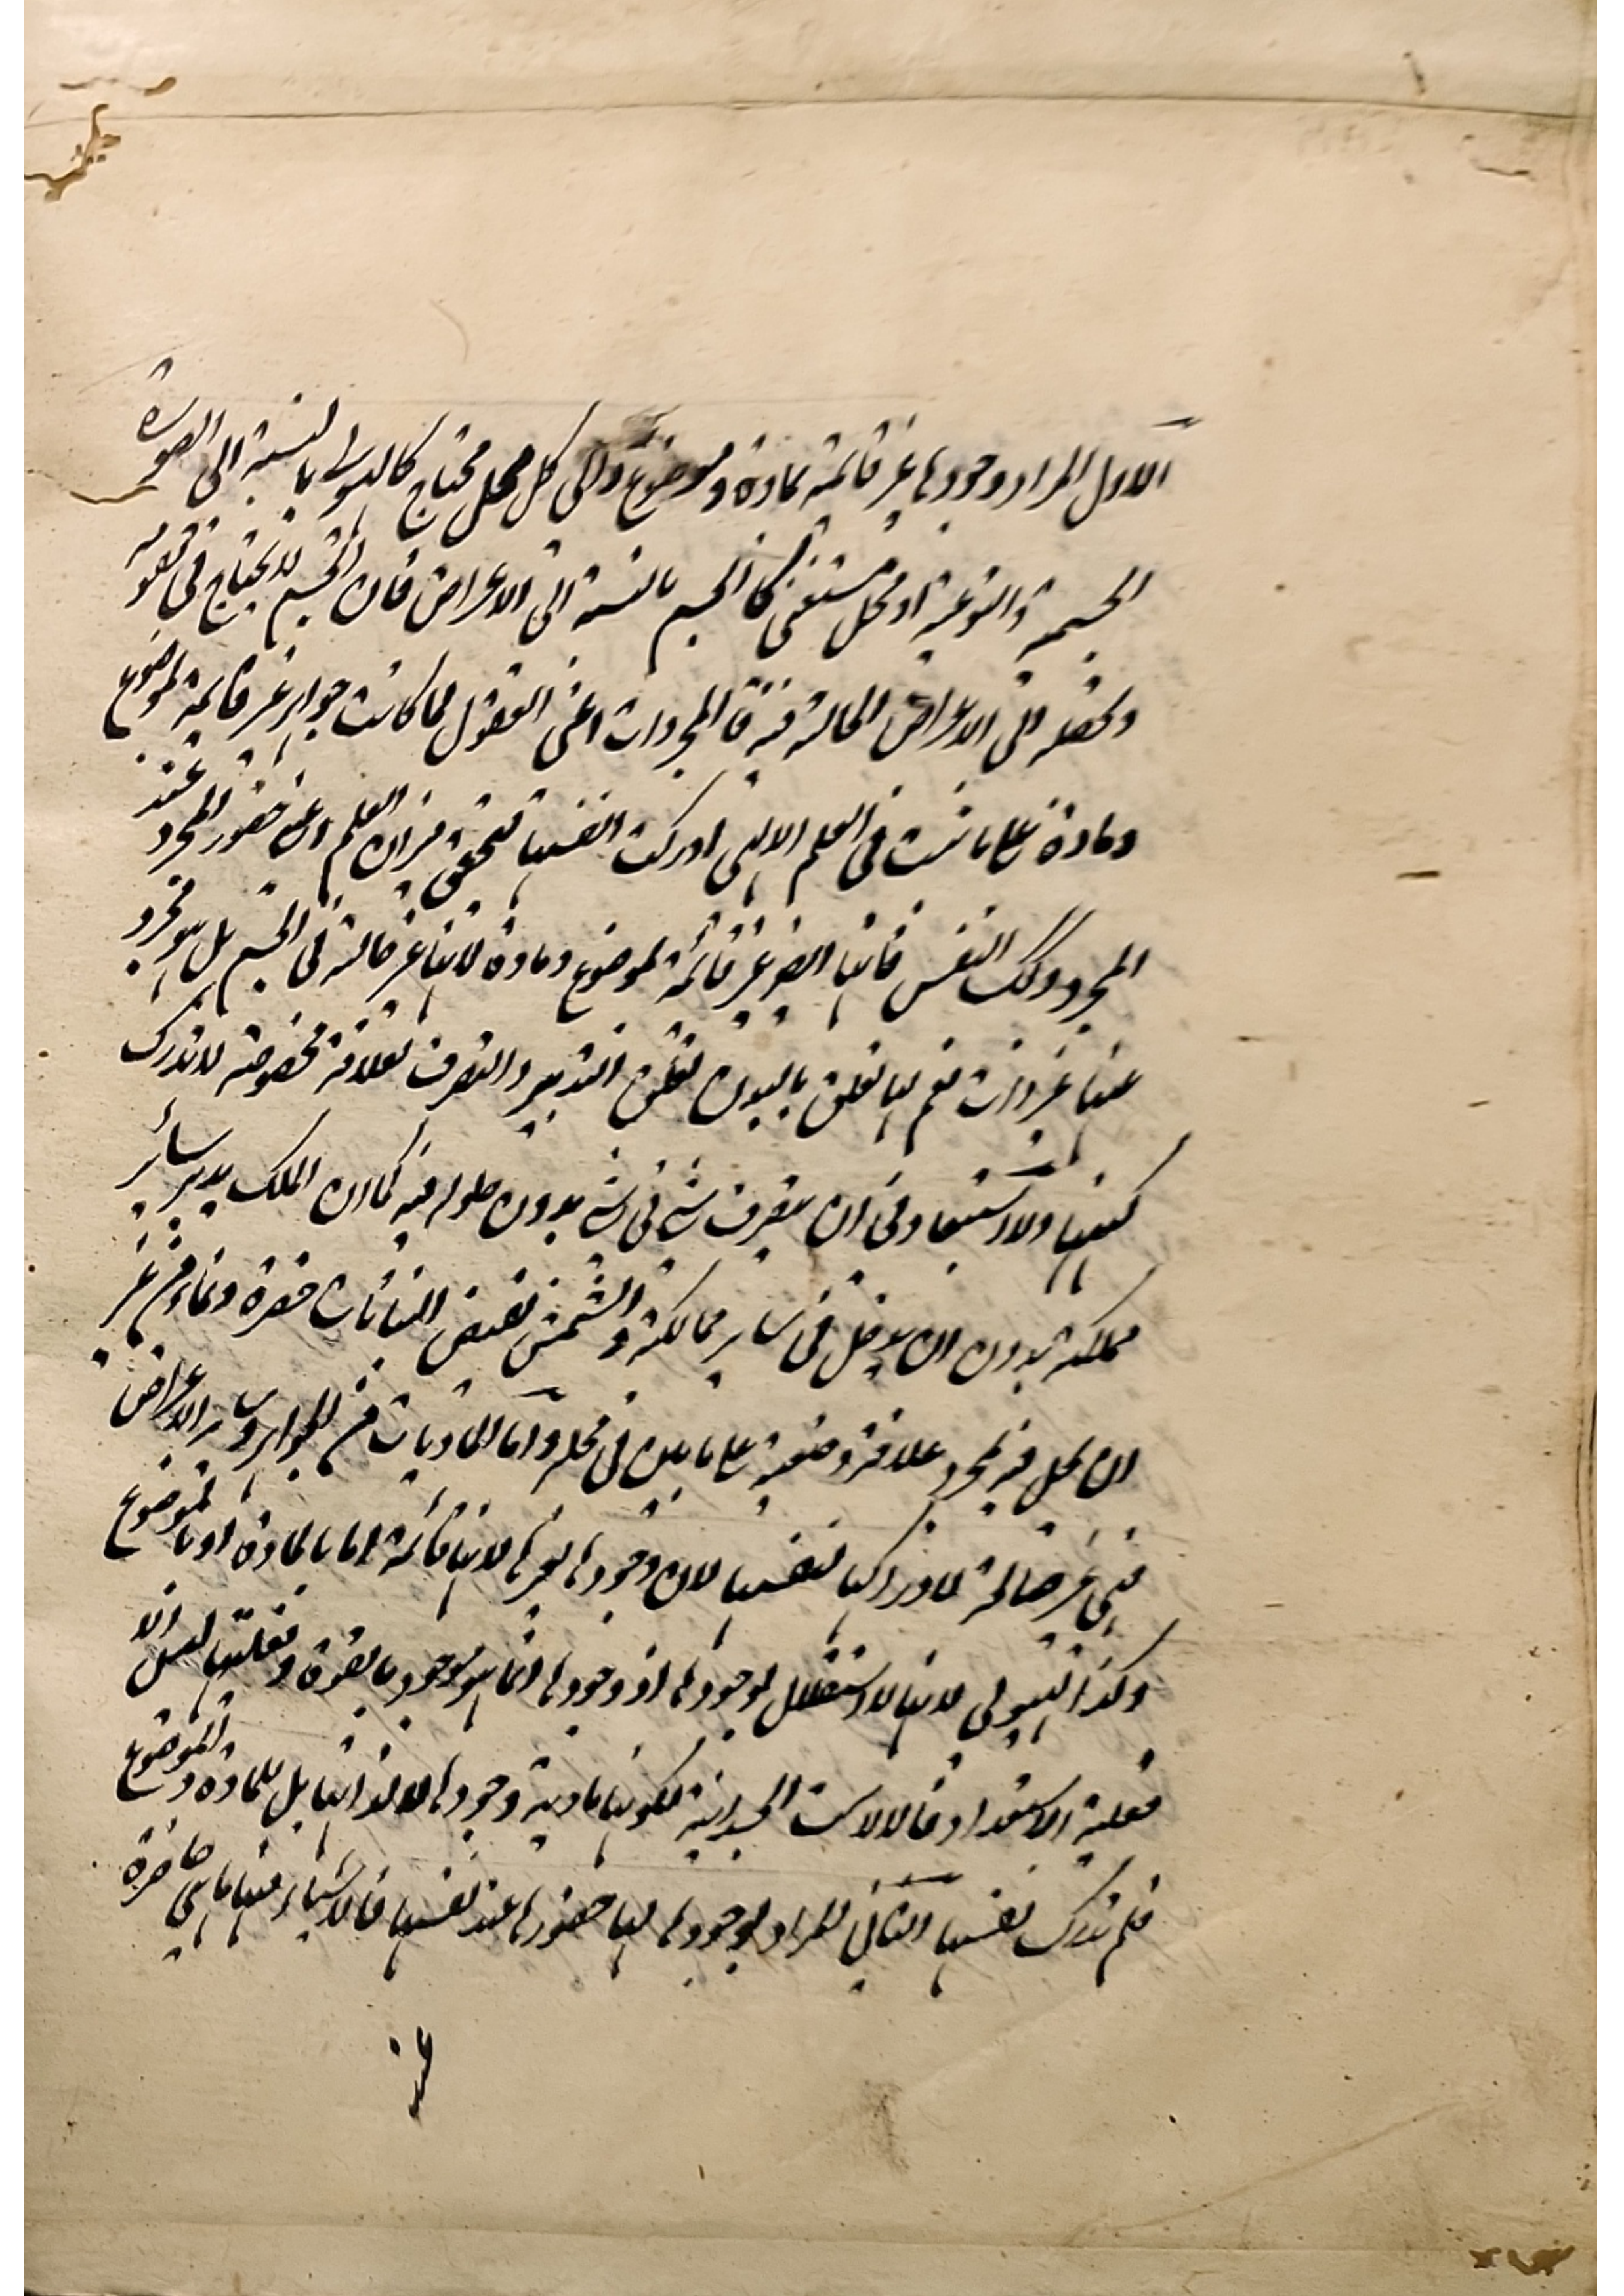 الاول المراد وجودها غير قائمة بمادة وموضوع والى كل محل محتاج كالهيولى بالنسبة الى الصورة
الجسمية والنوعية او محل مستغنى كالجسم بالنسبة الى الاعراض فان الجسم لا يحتاج فى تقومه
وتحصله الى الاعراض الحالة فيه فالمجردات اعنى العقول لما كانت جواهر غير قائمة بموضوع
ومادة على ما ثبت فى العلم الالهى ادركت انفسها لتحقق ميزان العلم اعنى حضور المجرد عند
المجرد وكذلك النفس فانها ايضا غير قائمة بموضوع ومادة لانها غير حالة فى الجسم بل هو مجرد
عنها غير ذات نعم لها تعلق بالبدن تعلق التدبير والتصرف لعلاقة مخصوصة لا تدرك
كنهها ولا استبعاد فى ان يتصرف شئ فى شئ بدون حلوله فيه كما ان الملك يدبر سائر
مملكته بدون ان يدخل فى ساير ممالكته والشمس تفيض النباتات خضرة ونماء من غير
ان يحل فيه بمجرد علاقة وضعية على ما بين فى محله واما الماديات من الجواهر وساير الاعراض
فهى غير صالحة لادراكها لنفسها لان وجودها لغيرها لانها قائمة اما بالمادة او بالموضوع
وكذا الهيولى لانها لا استقلال لوجودها اذ وجودها انما هو موجود بالقوة وفعليتها ليس الا
فعلية الاستعداد فالالات الجسدانية لكونها مادية وجودها لا لذاتها بل للمادة والموضوع
فلم تدرك نفسها الثانى المراد بوجودها لها حضورها عند نفسها فالاشياء منها ما هى حاضرة